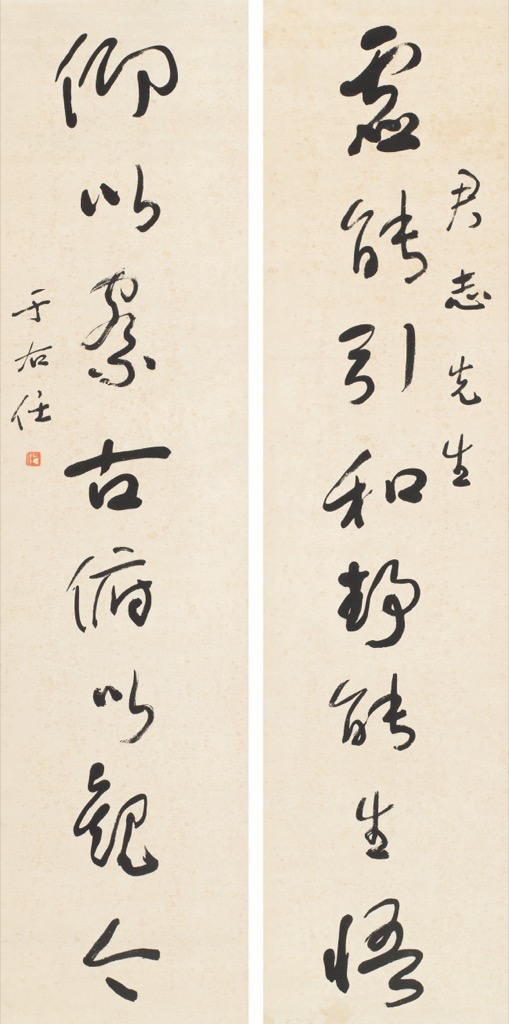 君志先生
虚能引和静能生悟
仰以察古俯以观今
于右任